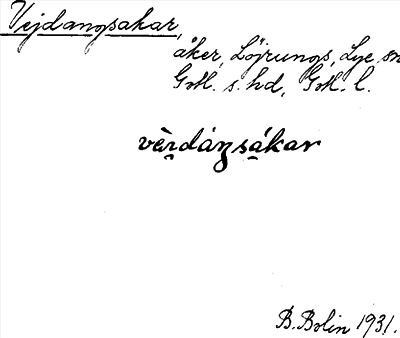 Vejdangsakar,
åker, Löjrungs, Lye sn
Gotl. s. hd, Gotl. l.
vèṛdáŋsákar
B. Bolin 1931.